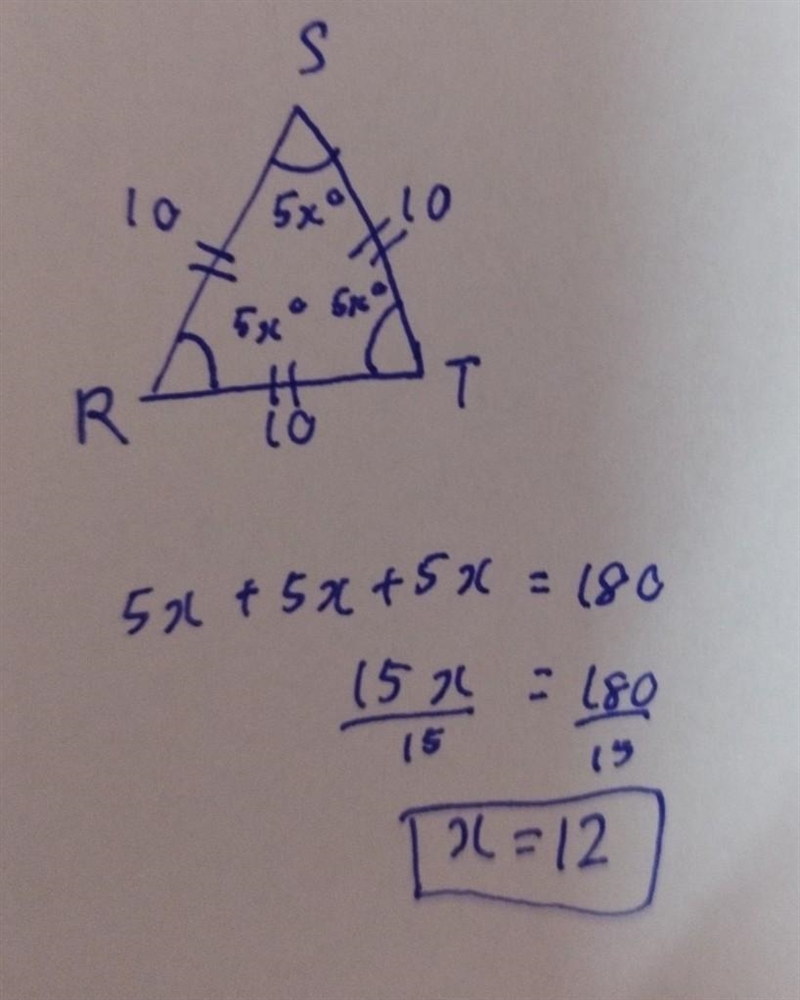 S
10
10
5x°
5x°
5x°
R
T
10
5x + 5x + 5x = 180
15x = 180
15 15
x = 12